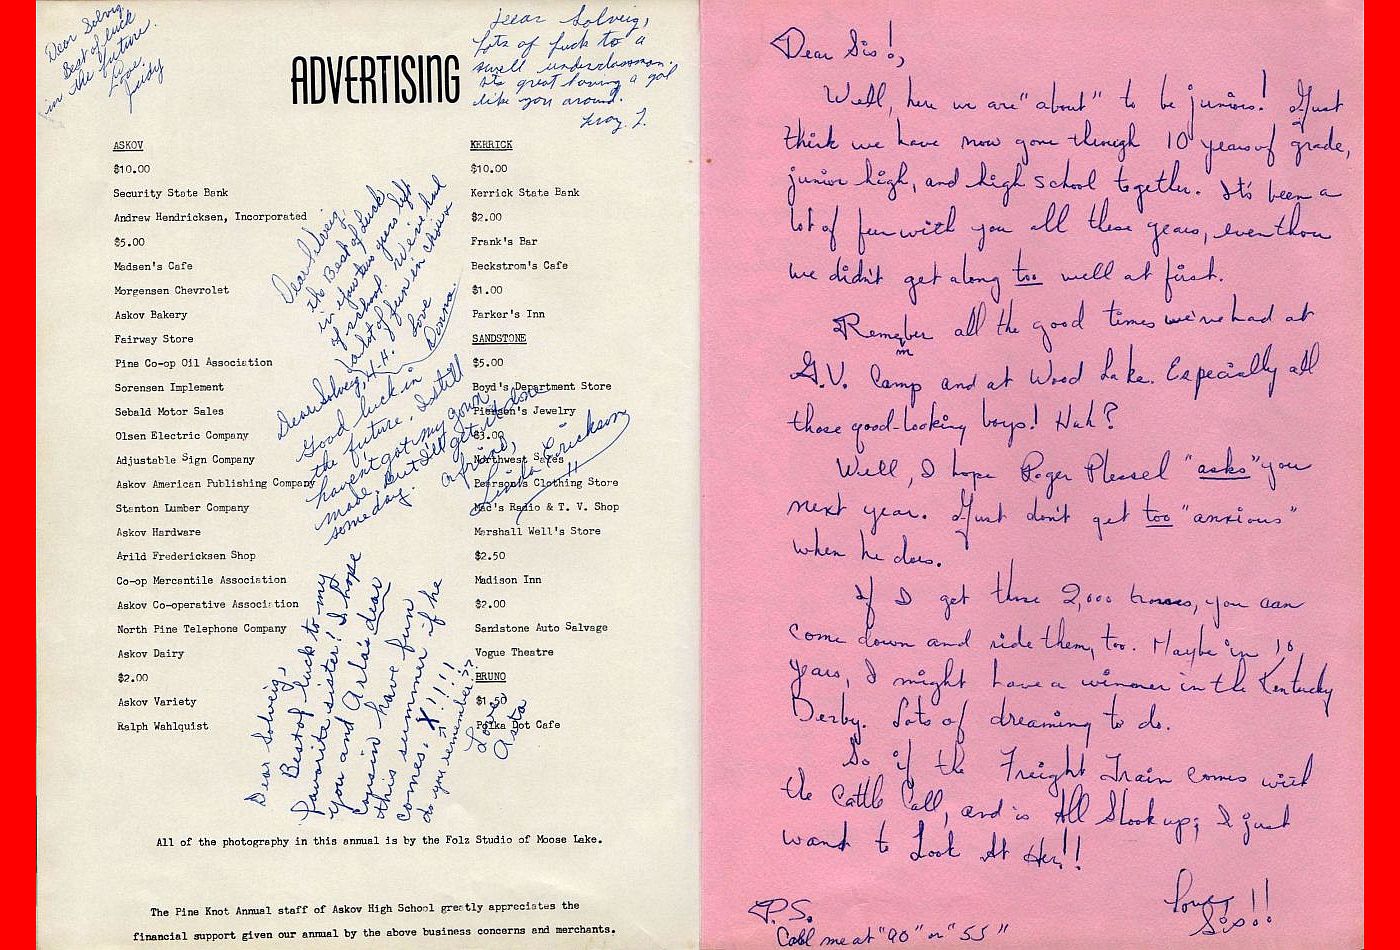 Dear Solveig,
Best of luck
in the future.
Love,
Judy
Dear Solveig,
Lots of luck to a
swell underclassman.
It's great having a gal
like you around.
ADVERTISING
ASKOV
$10.00
Security State Bank
Andrew Hendricksen, Incorporated
$5.00
Madsen's Cafe
Morgensen Chevrolet
Askov Bakery
Fairway Store
Pine Co-op Oil Association
Sorensen Implement
Sebald Motor Sales
Olsen Electric Company
Adjustable Sign Company
Askov American Publishing Company
Stanton Lumber Company
Askov Hardware
Arild Fredericksen Shop
Co-op Mercantile Association
Askov Co-operative Association
North Pine Telephone Company
Askov Dairy
$2.00
Askov Variety
Ralph Wahlquist
KERRICK
$10.00
Kerrick State Bank
$2.00
Frank's Bar
Beckstrom's Cafe
$1.00
Parker's Inn
SANDSTONE
$5.00
Boyd's Department Store
Pierson's Jewelry
$3.00
Northwest Sales
Pearson's Clothing Store
Mac's Radio & T. V. Shop
Marshall Well's Store
$2.50
Madison Inn
$2.00
Sandstone Auto Salvage
Vogue Theatre
BRUNO
$1.50
Polka Dot Cafe
Dear Solveig,
the Best of Luck
in your two years left
of school. We've had
a lot of fun in chorus
4-H. Love
Donna
Dear Solveig,
Good luck in
the future. I still
haven't got my gown
made, But I'll get it done
someday.
a friend,
Linda Erickson
Dear Solveig,
Best of luck to my
favorite sister! I hope
you and Arla's dear
cousin have fun
this summer if he
comes. X!!!!
do you remember??
Love
Asta
All of the photography in this annual is by the Folz Studio of Moose Lake.
The Pine Knot Annual staff of Askov High School greatly appreciates the
financial support given our annual by the above business concerns and merchants.
Dear Sis!,
Well, here we are "about" to be juniors! Just
think we have now gone through 10 years of grade,
junior high, and high school together. It's been a
lot of fun with you all these years, even thou
we didn't get along too well at first.
Remember all the good times we've had at
G.V. Camp and at Wood Lake. Especially all
those good-looking boys! Huh?
Well, I hope Roger Plessel "asks" you
next year. Just don't get too "anxious"
when he does.
If I get those 2,000 horses, you can
come down and ride them, too. Maybe in 10
years, I might have a winner in the Kentucky
Derby. Lots of dreaming to do.
So if the Freight Train comes with
the Cattle Call, and is All Shook up; I just
want to Look At Her!!
Love,
Sis!!
P.S.
Call me at "90" or "55"